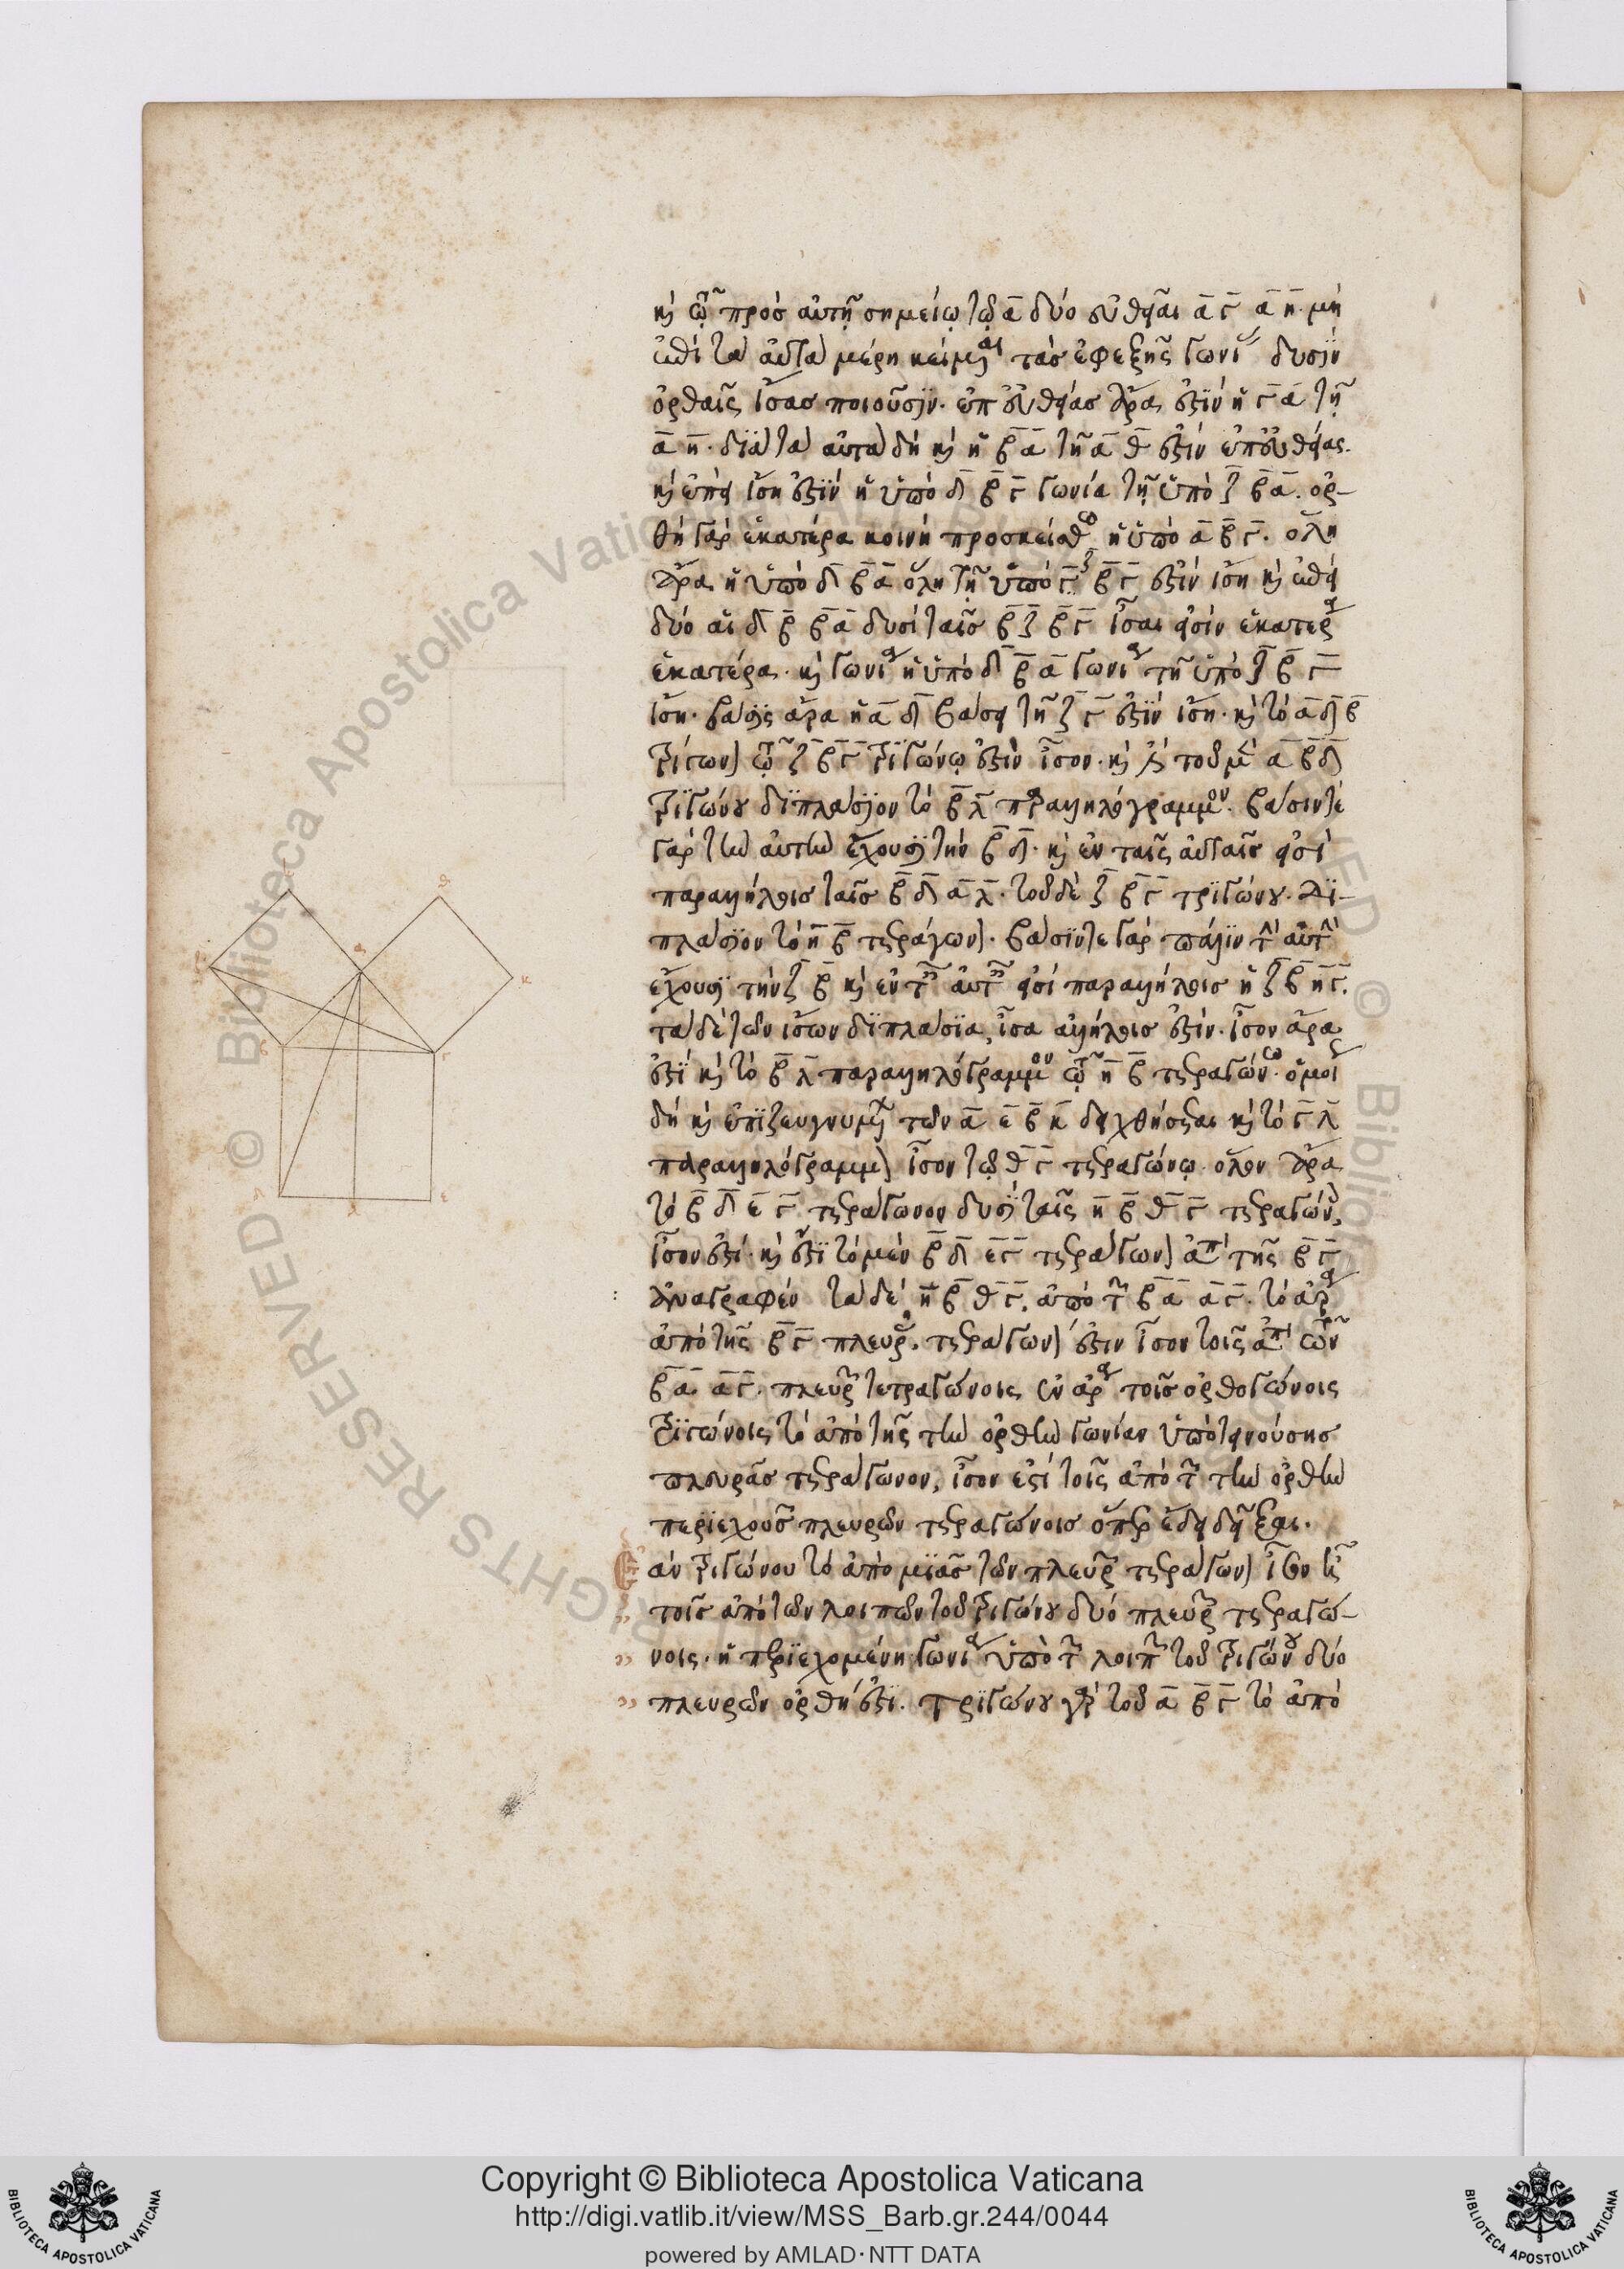 καὶ τῷ πρὸς αὐτῇ σημείῳ τῷ α δύο εὐθεῖαι α γ α η μὴ
ἐπὶ τὰ αὐτὰ μέρη κείμεναι τὰς ἐφεξῆς γωνίας δυσὶν
ὀρθαῖς ἴσας ποιοῦσιν. ἐπ εὐθείας ἄρα ἐστὶν ἡ γ α τῇ
α η. διὰ τὰ αὐτὰ δὴ καὶ ἡ β α τῇ α θ ἐστὶν ἐπ εὐθείας.
καὶ ἐπεὶ ἴση ἐστὶν ἡ ὑπὸ δ β γ γωνία τῇ ὑπὸ ζ β α. ὀρ-
θὴ γὰρ ἑκατέρα κοινὴ προσκείσθω ἡ ὑπὸ α β γ. ὅλη
ἄρα ἡ ὑπὸ δ β α ὅλῃ τῇ ὑπὸ ζ β γ ἐστὶν ἴση καὶ ἐπεὶ
δύο αἱ δ β β α δυσὶ ταῖς β ζ β γ ἴσαι εἰσὶν ἑκατέρα
ἑκατέρα. καὶ γωνία ἡ ὑπὸ δ β α γωνία τῇ ὑπὸ ζ β γ
ἴση. βάσις ἄρα ἡ α δ βάσει τῇ ζ γ ἐστὶν ἴση. καὶ τὸ α δ β
τρίγωνον τῷ ζ β γ τριγώνῳ ἐστὶν ἴσον. καὶ ἔστι τοῦ μὲν α β δ
τριγώνου διπλάσιον τὸ β λ παραλληλόγραμμον. βάσιν τε
γὰρ τὴν αὐτὴν ἔχουσι τὴν β δ. καὶ ἐν ταῖς αὐταῖς εἰσὶ
παραλλήλοις ταῖς β δ α λ. τοῦ δὲ ζ β γ τριγώνου. δι-
πλάσιον τὸ η β τετράγωνον. βάσιν τε γὰρ πάλιν τὴν αὐτὴν
ἔχουσι τὴν ζ β καὶ ἐν ταῖς αὐταῖς εἰσὶ παραλλήλοις ἡ ζ β η γ.
τὰ δὲ τῶν ἴσων διπλάσια, ἴσα ἀλλήλοις ἐστίν. ἴσον ἄρα
ἐστὶ καὶ τὸ β λ παραλληλόγραμμον τῷ η β τετραγώνω. ὁμοίως
δὴ καὶ ἐπιζευγνυμένων τῶν α ε β κ δειχθήσεται καὶ τὸ γ λ
παραλληλόγραμμον ἴσον τῷ θ γ τετραγώνῳ. ὅλον ἄρα
τὸ β δ ε γ τετράγωνον δυσὶ ταῖς η β θ γ τετραγώνοις
ἴσον ἐστί. καὶ ἐστὶ τὸ μὲν β δ ε γ τετράγωνον ἀπὸ τῆς β γ
ἀναγραφέν τὰ δὲ η β θ γ. ἀπὸ τῶν β α α γ. τὸ ἄρα
ἀπὸ τῆς β γ πλευρᾶς. τετράγωνον ἐστιν ἴσον τοῖς ἀπὸ τῶν
β α. α γ. πλευρῶν τετραγώνοις ἐν ἄρα τοῖς ὀρθογωνίοις
τριγώνοις τὸ ἀπὸ τῆς τὴν ὀρθὴν γωνίαν ὑποτεινούσης
πλευρᾶς τετράγωνον, ἴσον ἐστὶ τοῖς ἀπὸ τῶν τὴν ὀρθὴν
περιεχουσῶν πλευρῶν τετραγώνοις ὅπερ ἔδει δεῖξαι.
Ἐὰν τριγώνου τὸ ἀπὸ μιᾶς τῶν πλευρῶν τετράγωνον ἴσον ᾖ
τοῖς ἀπὸ τῶν λοιπῶν τοῦ τριγώνου δύο πλευρῶν τετραγώ-
νοις. ἡ περιεχομένη γωνία ὑπὸ τῶν λοιπῶν τοῦ τριγώνου δύο
πλευρῶν ὀρθή ἐστι. τριγώνου γὰρ τοῦ α β γ τὸ ἀπὸ
Copyright © Biblioteca Apostolica Vaticana
http://digi.vatlib.it/view/MSS_Barb.gr.244/0044
powered by AMLAD·NTT DATA